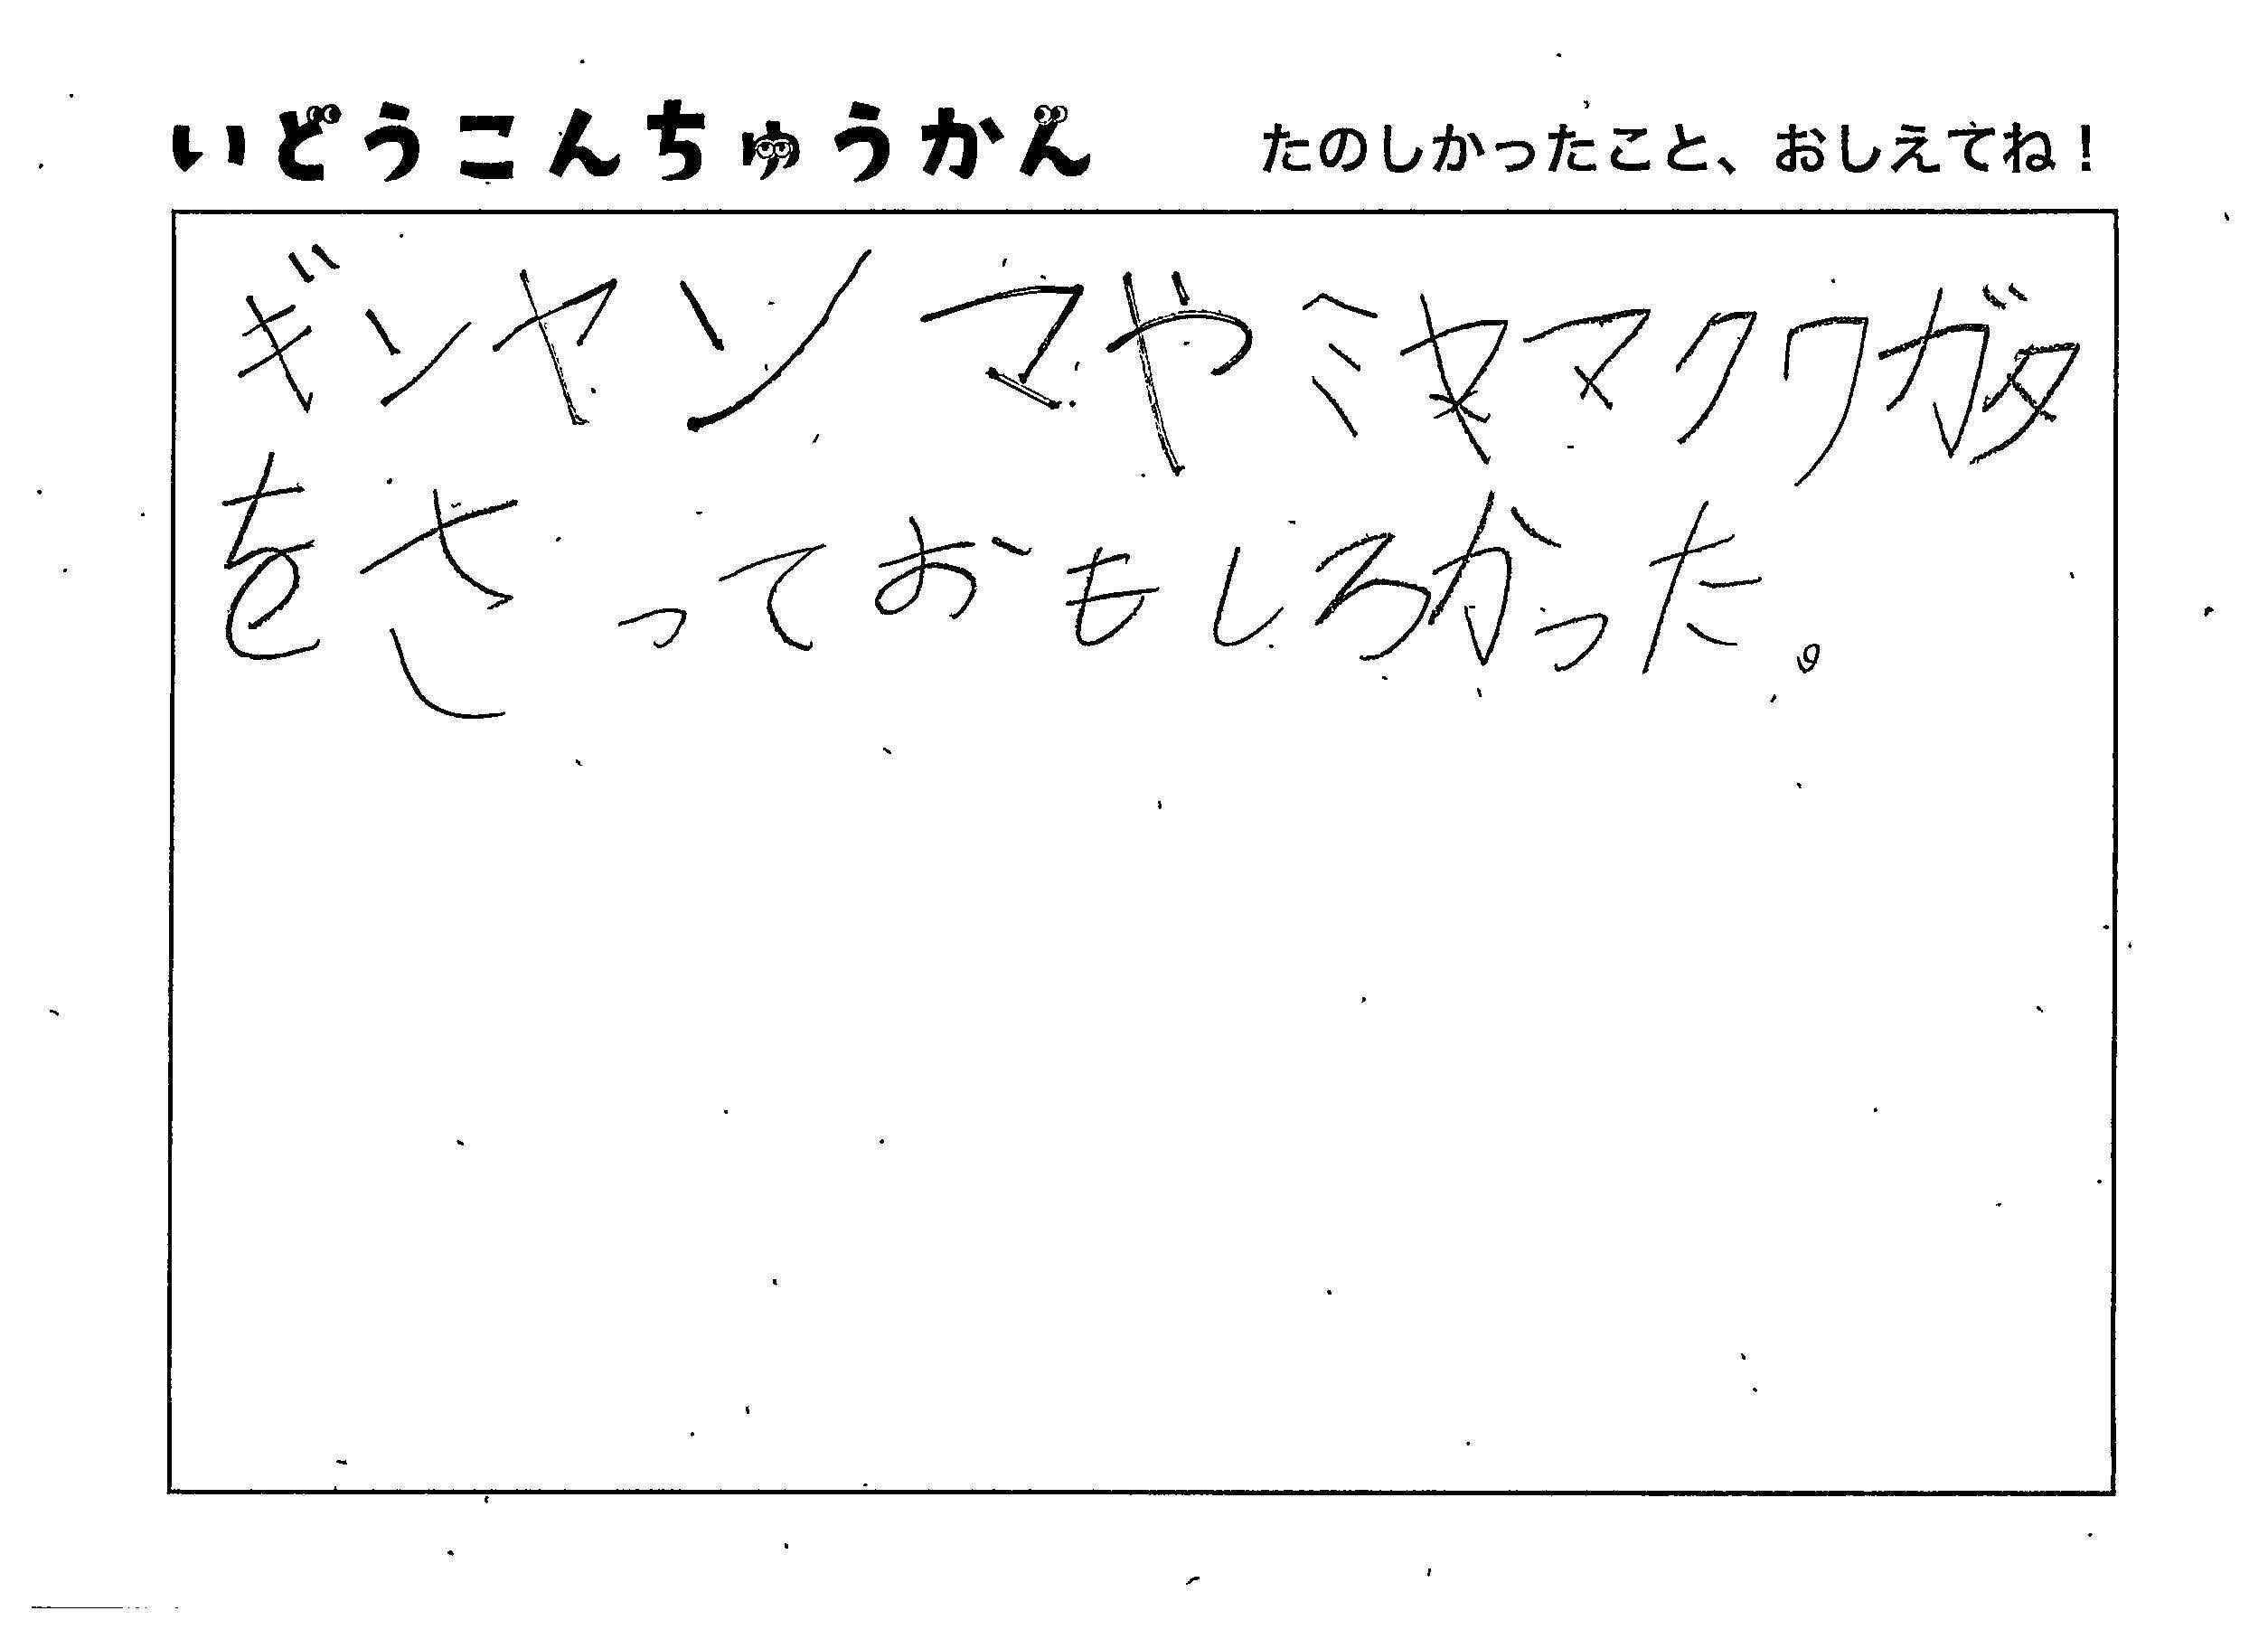 いどうこんちゅうかん　たのしかったこと、おしえてね！
ギンヤンマやミヤマクワガタ
をさっておもしろかった。